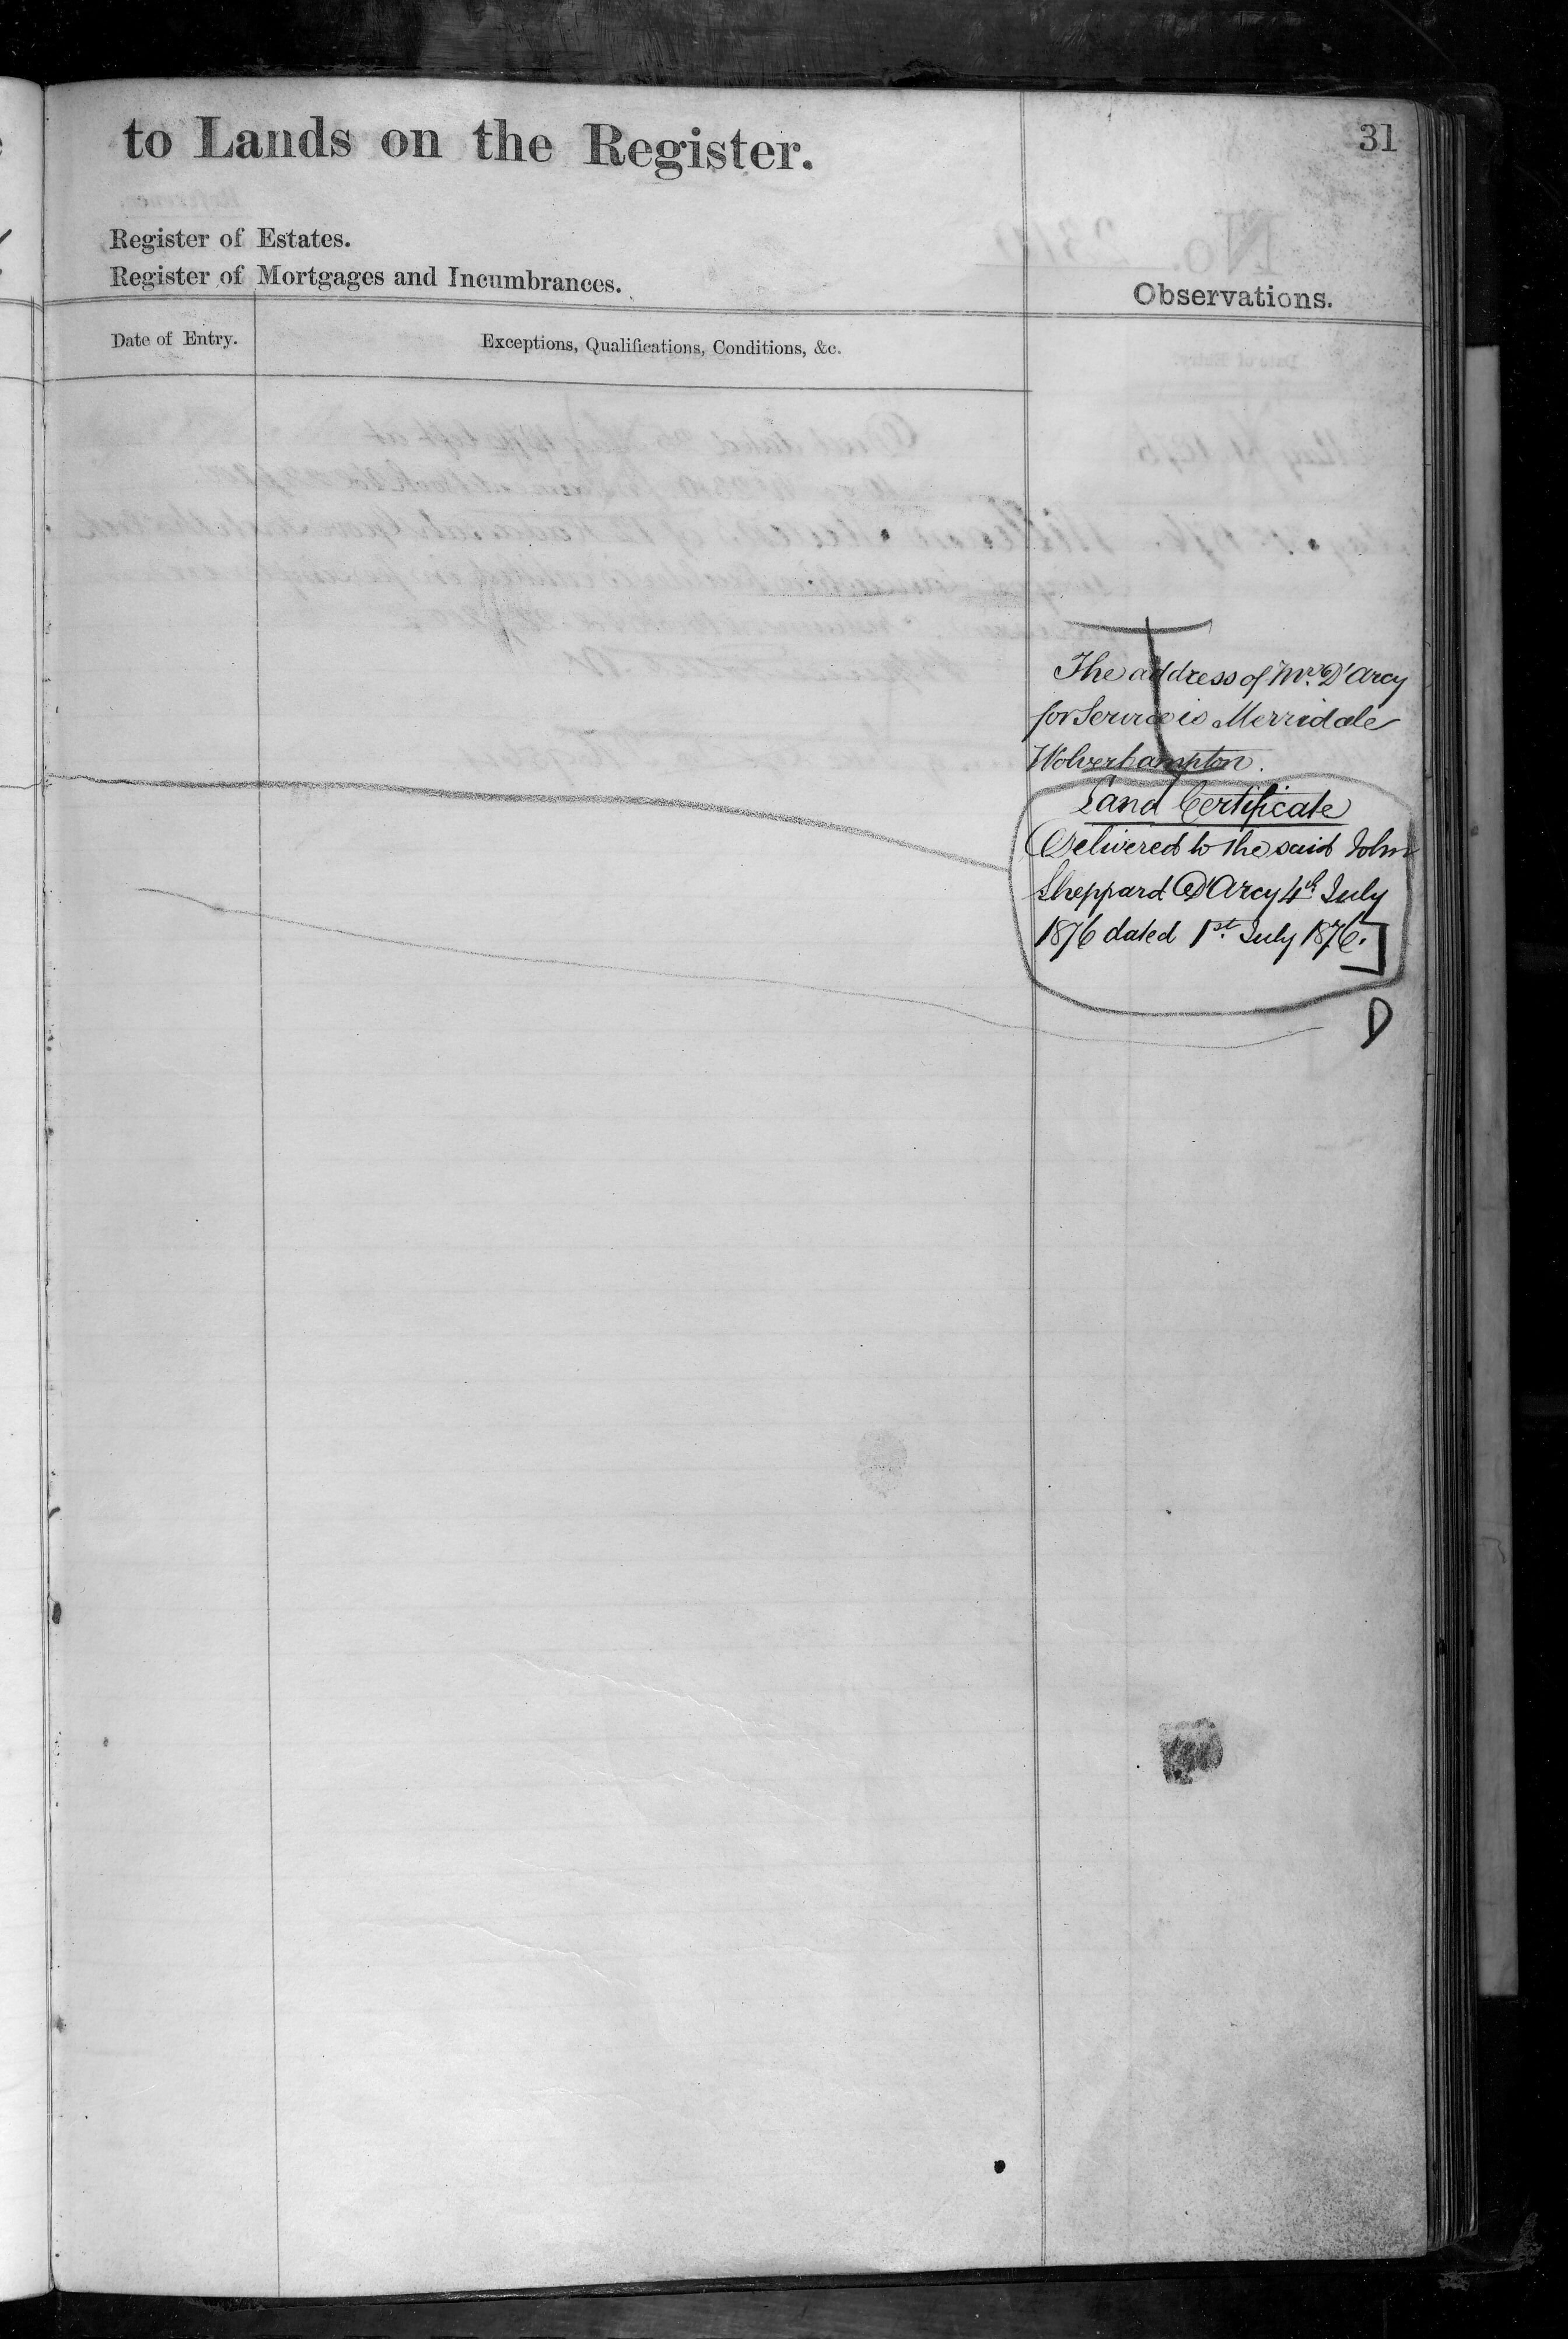 to Lands on the Register.
31
Register of Estates.
Register of Mortgages and Incumbrances.
Observations.
Date of Entry.
Exceptions, Qualifications, Conditions, &c.
The address of Mr. D'Arcy
for Service is Merridale
Wolverhampton.
Land Certificate
Delivered to the said John
Sheppard D'Arcy 4th July
1876 dated 1st July 1876.]
D